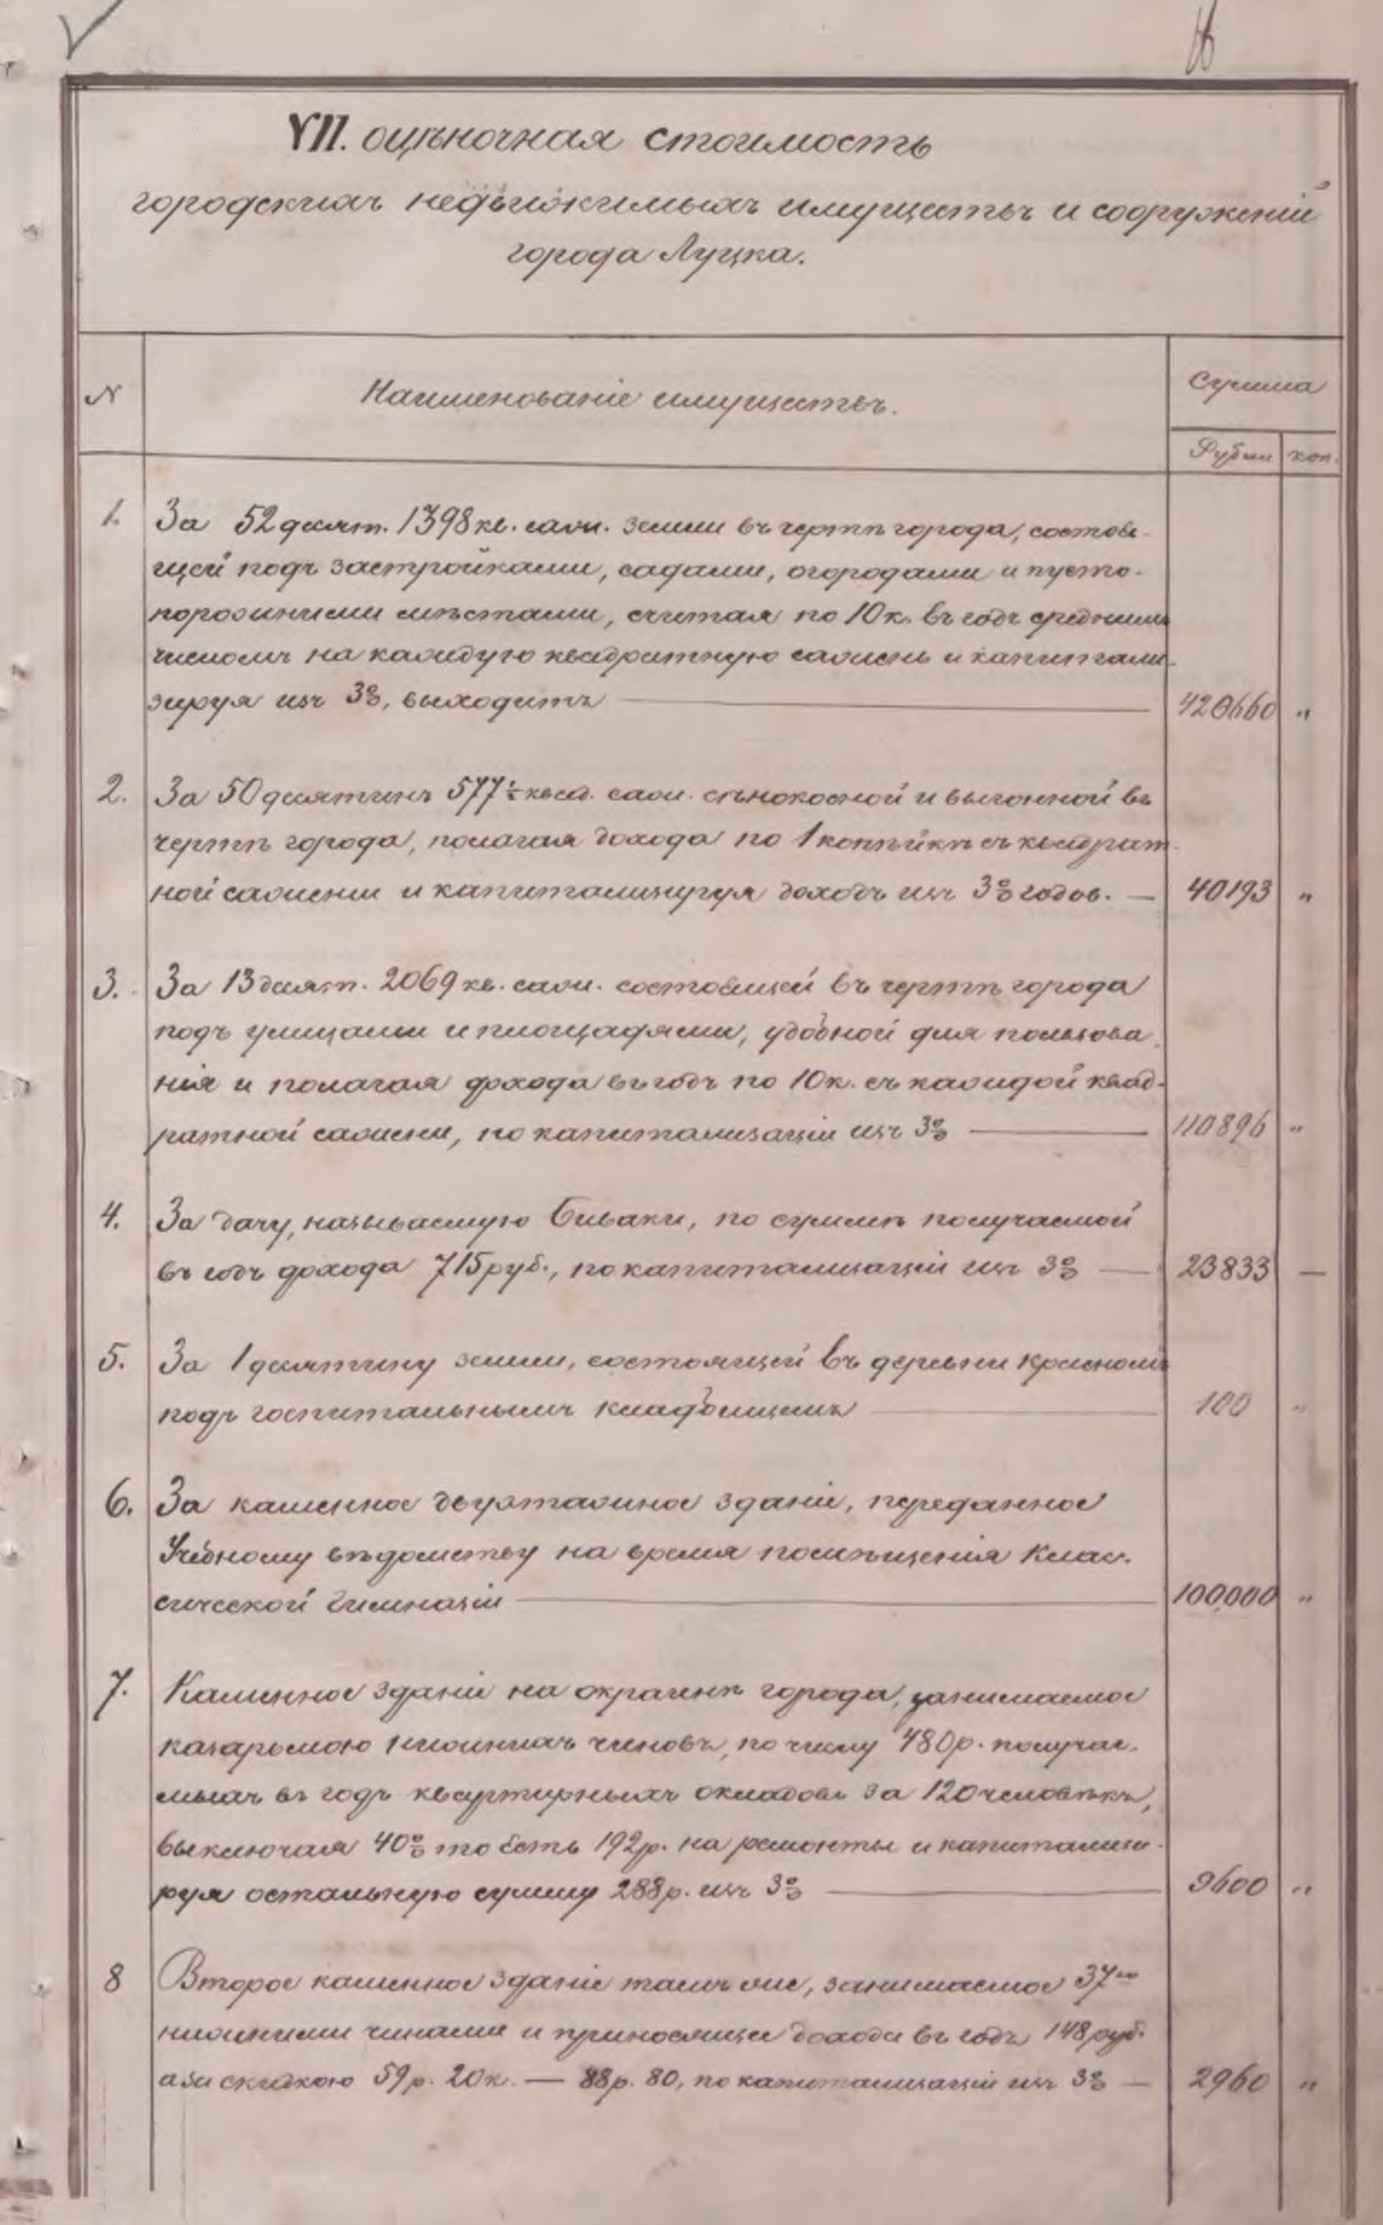 VII. оцѣночная стоимость
городскихъ недвижимыхъ имуществъ и сооруженій
города Луцка.
N
Наименованіе имуществъ.
Сумма
Рубли
коп.
1. За 52 десят. 1398 кв. саж. земли въ чертѣ города, состоя-
щей подъ застройками, садами, огородами и пусто-
порожними мѣстами, считая по 10 к. въ годъ среднимъ
числомъ на каждую квадратную сажень и капитали-
зируя изъ 3%, выходитъ — 420660 "
2. За 50 десятинъ 577½ квад. саж. сѣнокосной и выгонной въ
чертѣ города, полагая дохода по 1 копѣйкѣ съ квадрат-
ной сажени и капитализируя доходъ изъ 3% годов. — 40193 "
3. За 13 десят. 2069 кв. саж. состоящей въ чертѣ города
подъ улицами и площадями, удобной для пользова-
нія и полагая дохода въ годъ по 10 к. съ каждой квад-
ратной сажени, по капитализаціи изъ 3% — 110896 "
4. За дачу, называемую Биваки, по суммѣ получаемой
въ годъ дохода 715 руб., по капитализаціи изъ 3% — 23833 —
5. За 1 десятину земли, состоящей въ деревни Красномъ
подъ госпитальнымъ кладбищемъ — 100 "
6. За каменное двухэтажное зданіе, переданное
Учебному вѣдомству на время помѣщенія Клас-
сической Гимназіи — 100,000 "
7. Каменное зданіе на окраинѣ города, занимаемое
казармою нижнихъ чиновъ, по числу 480 р. получае-
мыхъ въ годъ квартирныхъ окладовъ за 120 человѣкъ,
выключая 40% то есть 192 р. на ремонты и капитализи-
руя остальную сумму 288 р. изъ 3% — 9600 "
8 Второе каменное зданіе тамъ же, занимаемое 37ю
нижними чинами и приносящее дохода въ годъ 148 руб.
а за скидкою 59 р. 20 к. — 88 р. 80, по капитализаціи изъ 3% — 2960 "